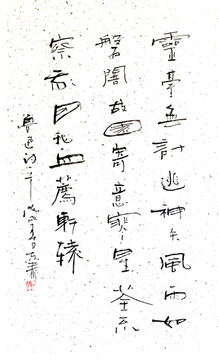 靈臺無計逃神矢風雨如
磐闇故園寄意寒星荃不
察我以我血薦軒轅
魯迅詩